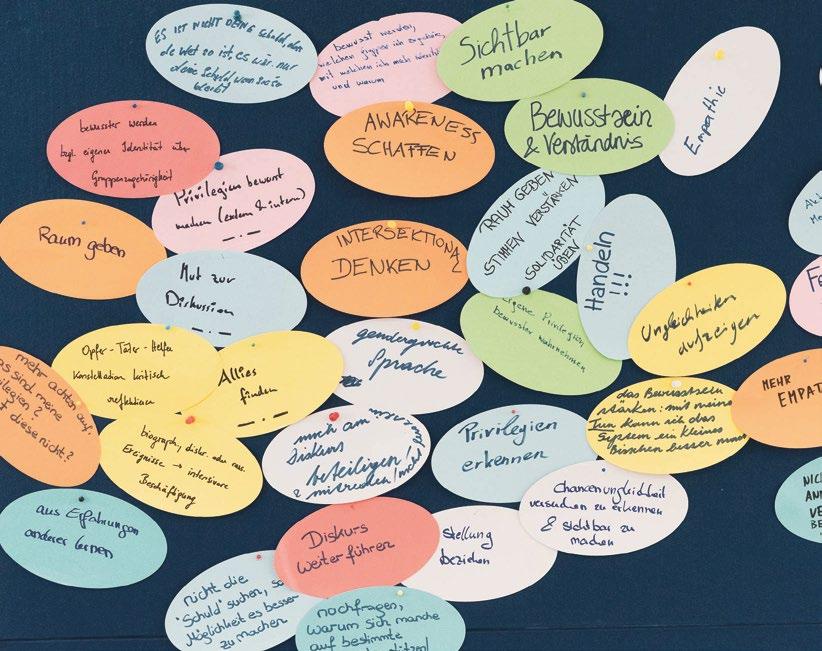 ES IST NICHT DEINE Schuld, dass
die Welt so ist, es wär nur
deine Schuld wenn sie so
bleibt
bewusst werden,
welchen ich angehöre,
mit welchen ich mich
und warum
Sichtbar
machen
Empathie
bewusster werden
bzgl. eigener Identität
Gruppenzugehörigkeit
AWARENESS
SCHAFFEN
Bewusstsein
& Verständnis
Privilegien bewusst
machen (extern & intern)
RAUM GEBEN
STIMMEN VERSTÄRKEN
SOLIDARITÄT
ÜBEN
Handeln
!!!
Raum geben
Mut zur
Diskussion
INTERSEKTIONAL
DENKEN
eigene Privilegien
bewusster wahrnehmen
Ungleichheiten
aufzeigen
mehr achten auf,
was sind meine
diese nicht?
Opfer-Täter-Helfer
Konstellation kritisch
reflektieren
Allies
finden
gendergerechte
Sprache
das Bewusstsein
stärken: mit meinem
Tun kann ich das
System ein kleines
bisschen besser
MEHR
EMPAT
biograph., diskr. oder rass.
Ereignisse → intensivere
Beschäftigung
mich am
Diskurs
beteiligen!
Privilegien
erkennen
Chancenungleichheit
versuchen zu erkennen
& sichtbar zu
machen
aus Erfahrungen
anderer lernen
Diskurs
weiterführen
Stellung
beziehen
nicht die
"Schuld" suchen, so
Möglichkeit es besser
zu machen
nachfragen,
warum sich manche
auf bestimmte